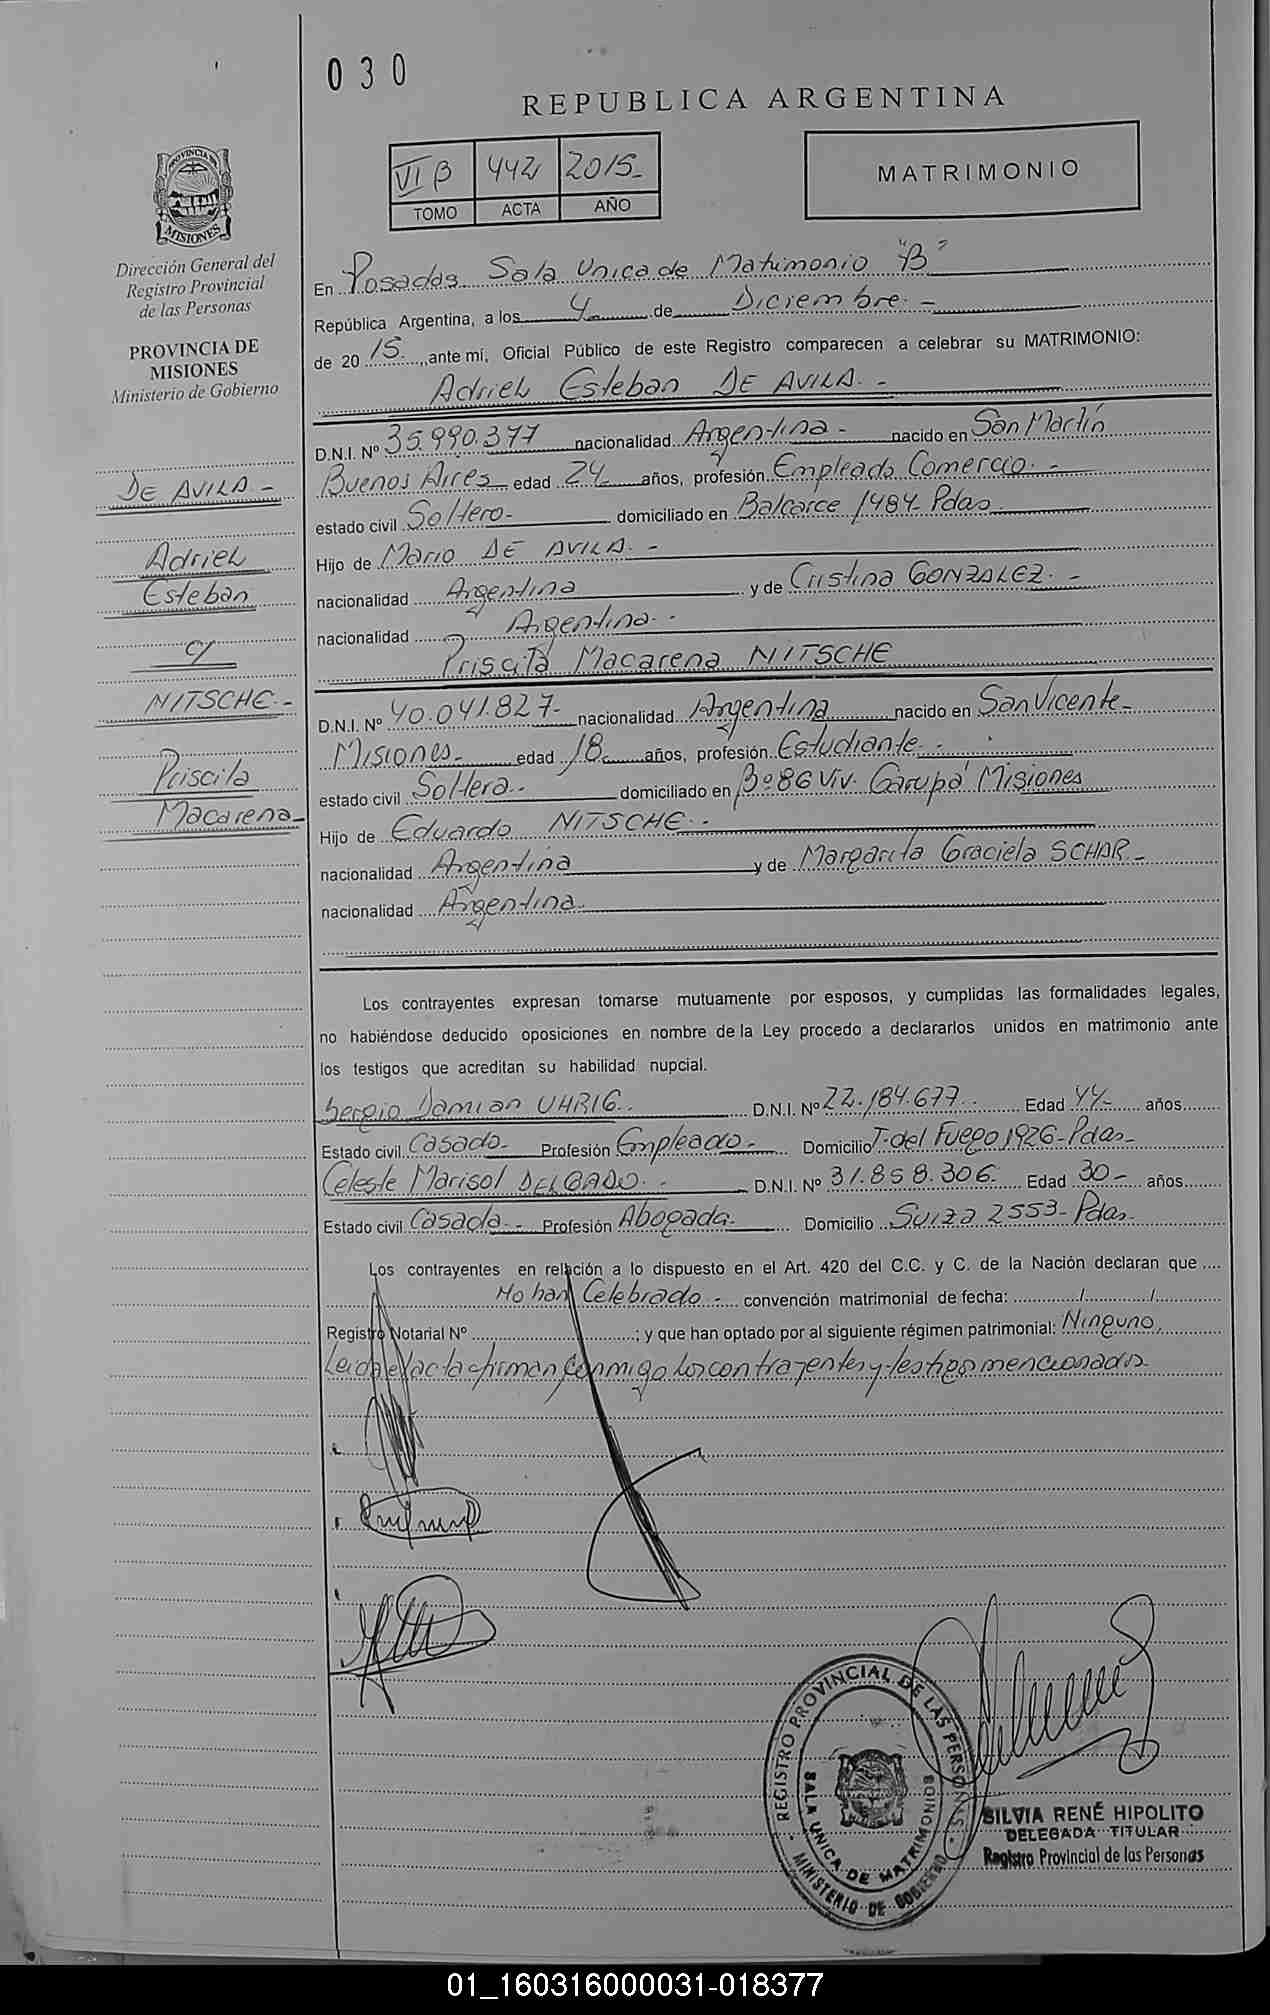 030
REPUBLICA ARGENTINA
VI B 442 2015-
TOMO ACTA AÑO
MATRIMONIO
PROVINCIA
MISIONES
Dirección General del
Registro Provincial
de las Personas
PROVINCIA DE
MISIONES
Ministerio de Gobierno
DE AVILA -
Adriel
Esteban
c/
NITSCHE.-
Priscila
Macarena-
En Posadas Sala Unica de Matrimonio "B"
República Argentina, a los 4 de Diciembre.-
de 20 15. ante mí, Oficial Público de este Registro comparecen a celebrar su MATRIMONIO:
Adriel Esteban DE AVILA.-
D.N.I. Nº 35.990.377 nacionalidad Argentina- nacido en San Martín
Buenos Aires edad 24 años, profesión Empleado Comercio.-
estado civil Soltero- domiciliado en Balcarce 1484- Pdas
Hijo de Mario DE AVILA.-
nacionalidad Argentina y de Cristina GONZALEZ.-
nacionalidad Argentina.-
Priscila Macarena NITSCHE
D.N.I. Nº 40.041.827- nacionalidad Argentina nacido en San Vicente-
Misiones- edad 18 años, profesión Estudiante.-
estado civil Soltera.- domiciliado en Bº 86 Viv. Garupá Misiones
Hijo de Eduardo NITSCHE.-
nacionalidad Argentina y de Margarita Graciela SCHAR-
nacionalidad Argentina.
Los contrayentes expresan tomarse mutuamente por esposos, y cumplidas las formalidades legales,
no habiéndose deducido oposiciones en nombre de la Ley procedo a declararlos unidos en matrimonio ante
los testigos que acreditan su habilidad nupcial.
Sergio Damian UHRIG.- D.N.I. Nº 22.184.677.- Edad 44- años
Estado civil Casado- Profesión Empleado- Domicilio T. del Fuego 1926-Pdas-
Celeste Marisol DELGADO.- D.N.I. Nº 31.858.306. Edad 30- años
Estado civil Casada.- Profesión Abogada. Domicilio Suiza 2553- Pdas-
Los contrayentes en relación a lo dispuesto en el Art. 420 del C.C. y C. de la Nación declaran que
No han Celebrado- convención matrimonial de fecha: / /
Registro Notarial Nº ; y que han optado por al siguiente régimen patrimonial: Ninguno,
Leida el acta firman conmigo los contrayentes y testigos mencionados-
REGISTRO PROVINCIAL DE LAS PERSONAS
SALA UNICA DE MATRIMONIOS
MINISTERIO DE GOBIERNO
SILVIA RENÉ HIPOLITO
DELEGADA TITULAR
Registro Provincial de las Personas
01_160316000031-018377